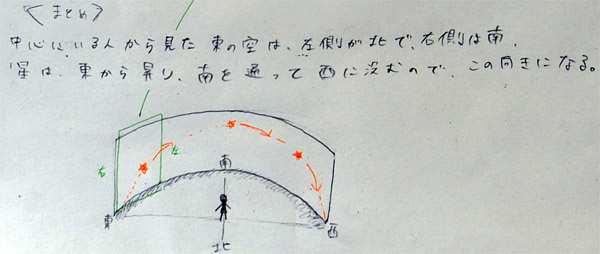 <まとめ>
中心にいる人から見た 東の空は、左側が北で、右側は南。
星は、東から昇り、南を通って 西に沈むので、この向きになる。
右
左
南
東
西
北